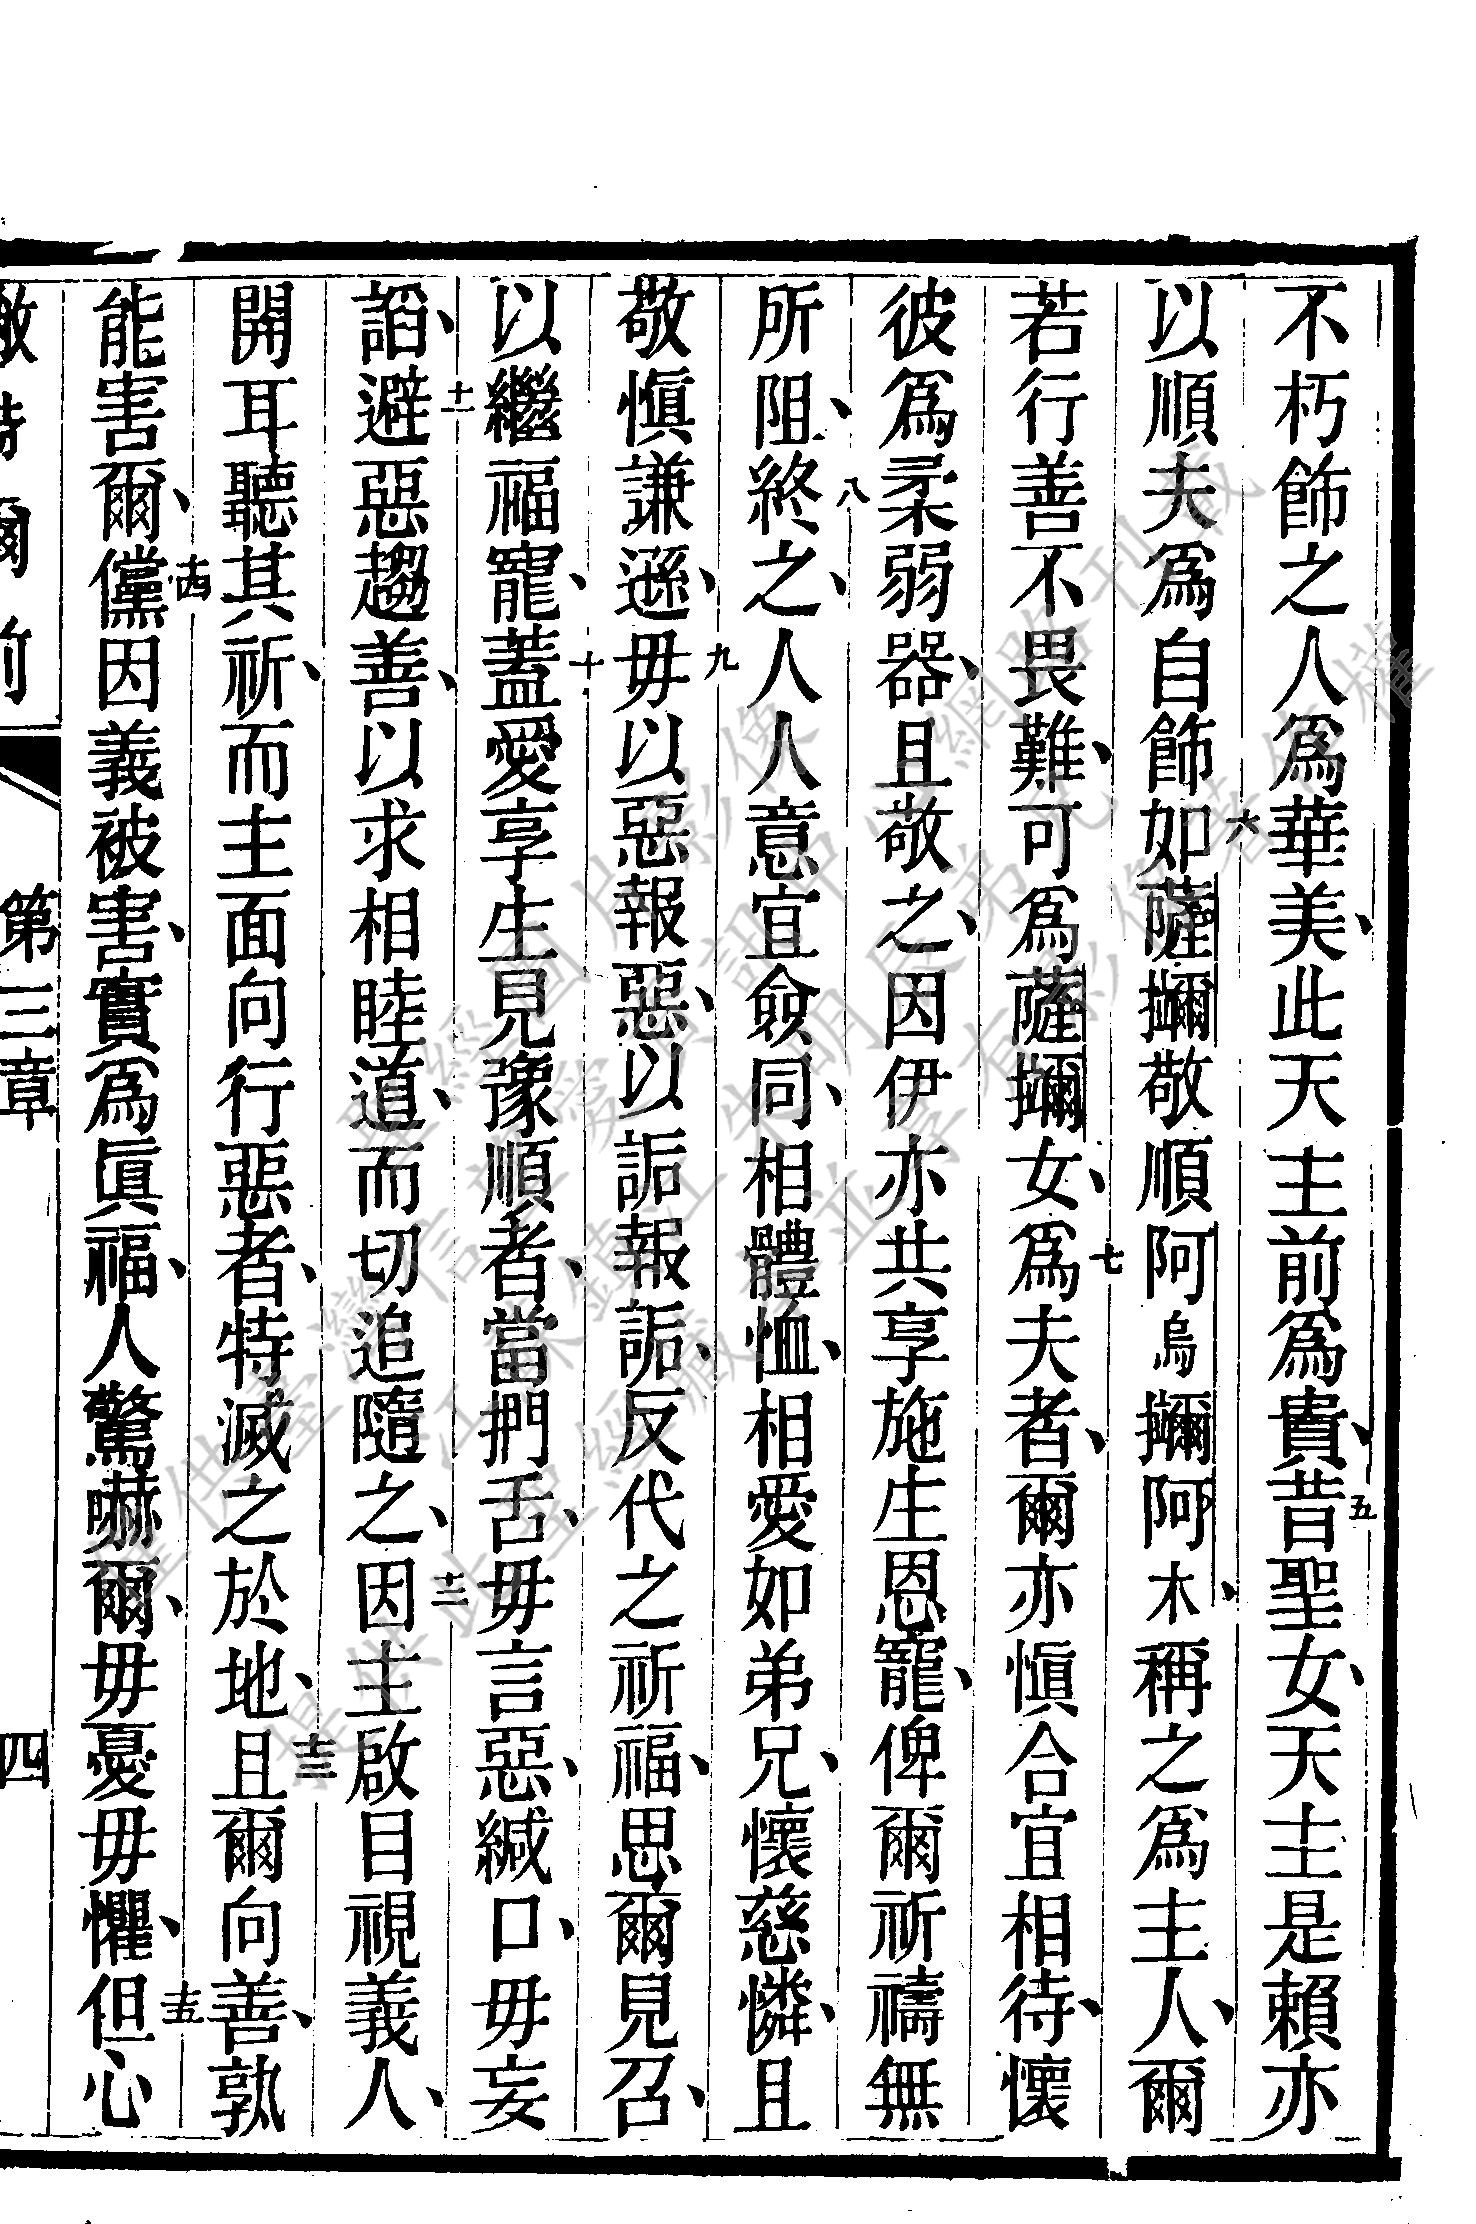 不朽飾之人爲華美、此天主前爲貴、五昔聖女、天主是賴亦
以順夫爲自飾六如薩攧敬順阿烏攧阿木、稱之爲主人、爾
若行善不畏難、可爲薩攧女、七爲夫者、爾亦愼合宜相待、懷
彼爲柔弱器、且敬之、因伊亦共享施生恩寵、俾爾祈禱無
所阻、八終之、人人意宜僉同、相體恤、相愛如弟兄、懷慈憐、且
敬愼謙遜、九毋以惡報惡、以詬報詬、反代之祈福、思爾見召、
以繼福寵、十蓋愛享生見豫順者、當捫舌、毋言惡、緘口、毋妄
謟、十一避惡趨善、以求相睦道、而切追隨之、十二因主啟目視義人、
開耳聽其祈、而主面向行惡者、特滅之於地、十三且爾向善、孰
能害爾、十四儻因義被害、實爲眞福、人驚嚇爾、毋憂毋懼、十五但心
第三章
四